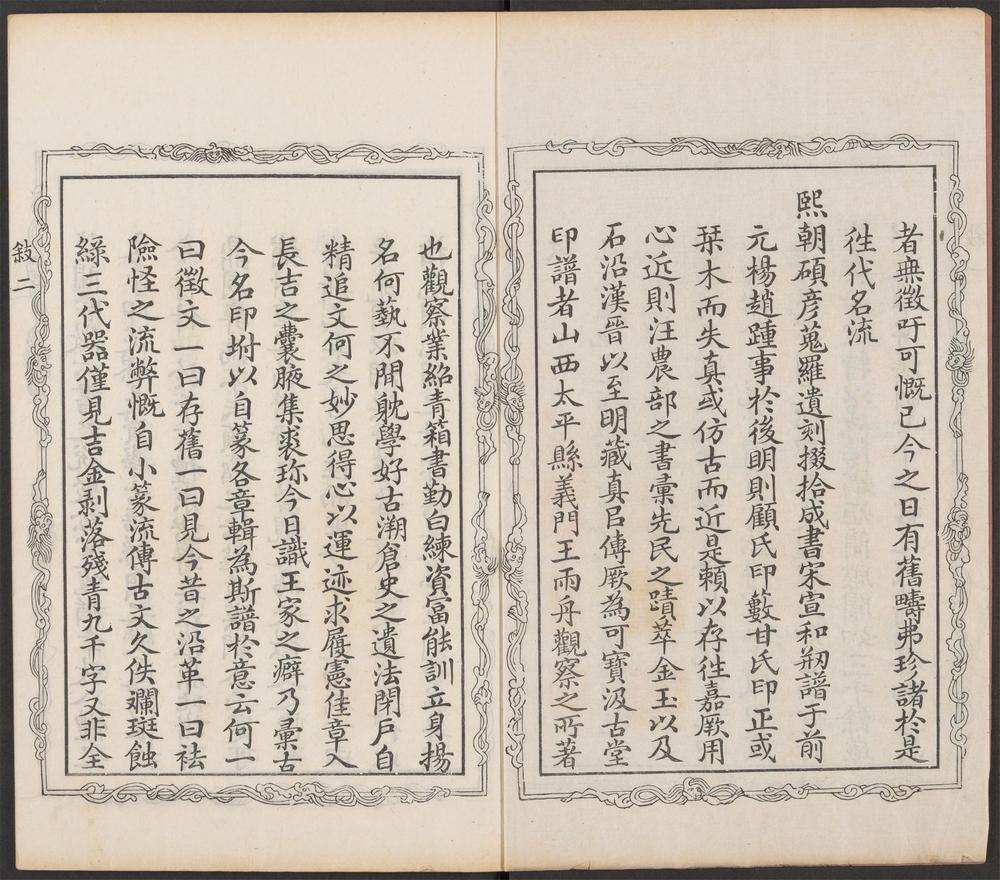 者無徵吁可慨已今之日有舊疇弗珍諸於是
徃代名流
熙朝碩彦蒐羅遺刻掇拾成書宋宣和剏譜于前
元楊趙踵事於後明則顧氏印藪甘氏印正或
琹木而失真或仿古而近是賴以存徃嘉厥用
心近則汪農部之書彙先民之蹟萃金玉以及
石沿漢晉以至明藏真㠯傳厥為可寶汲古堂
印譜者山西太平縣義門王雨舟觀察之所著
也觀察業紹青箱書勤白練資富能訓立身揚
名何藝不聞躭學好古溯倉史之遺法閉戶自
精追文何之妙思得心以運迹求履憲佳章入
長吉之囊腋集裘珎今日識王家之癖乃彙古
今名印坿以自篆各章輯為斯譜於意云何一
曰徵文一曰存舊一曰見今昔之沿革一曰袪
險怪之流弊慨自小篆流傳古文久佚斕斑蝕
綠三代器僅見吉金剥落殘青九千字又非全
敍 二